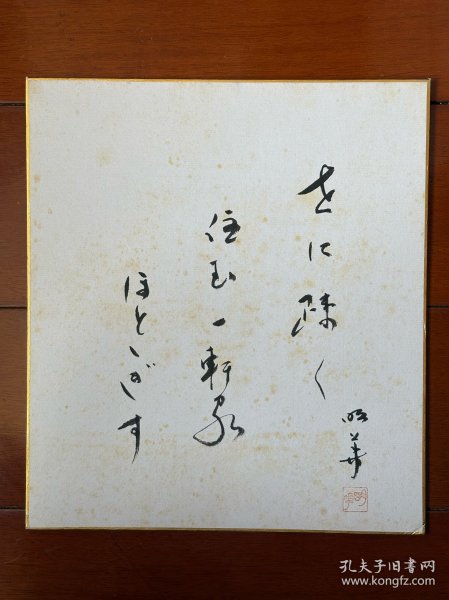 世に疎く
住む一軒家
ほとゝぎす
華
孔夫子旧书网
www.kongfz.com